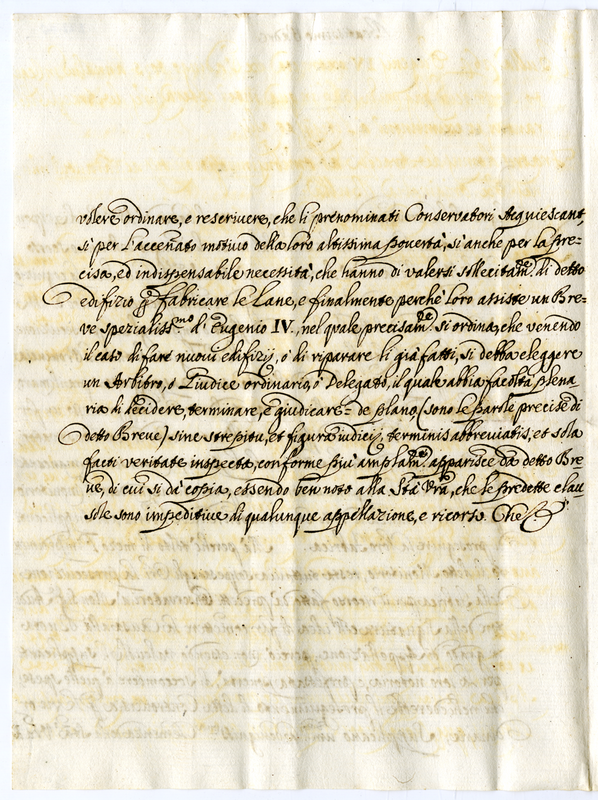 volere ordinare, e rescrivere, che li prenominati Conservatori Acquiescant,
sì per l'accennato motivo della loro altissima povertà, sì anche per la pre-
cisa, ed indispensabile necessità, che hanno di valersi sollecitam.te di detto
edifizio p fabricare le Lane, e finalmente perchè loro assiste un Bre-
ve spezialiss.mo d'Eugenio IV., nel quale precisam.te si ordina, che venendo
il caso di fare nuovi edifizij, ó di riparare li già fatti, si debba eleggere
un Arbitro, ó Giudice ordinario, ó Delegato, il quale abbia facoltà plena-
ria di decidere, terminare, e giudicare = de plano (sono le parole precise di
detto Breve) sine strepitu, et figura iudicij, terminis abbreviatis, et sola
facti veritate inspecta, conforme più amplam.te apparisce da detto Bre-
ve, di cui si dà copia, essendo ben noto alla Stà Vra, che le predette clau-
sole sono impeditive di qualunque appellazione, e ricorso. Che